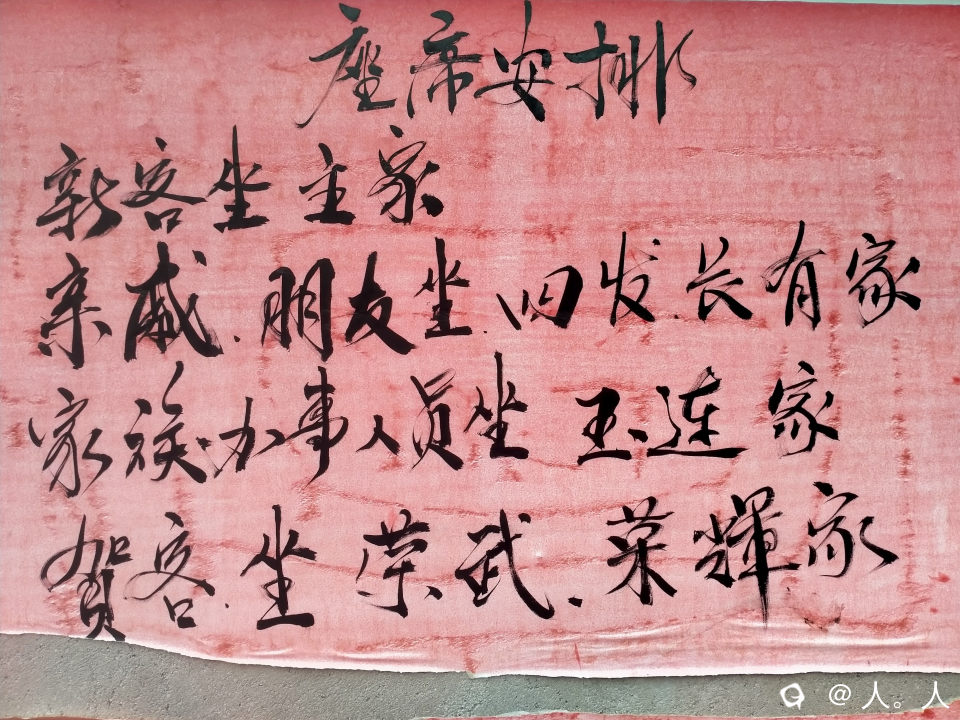 座席安排
新客坐主家
亲戚.朋友坐.四发.长有家
家族.办事人员坐 玉连家
贺客.坐荣武.荣辉家
@人。人